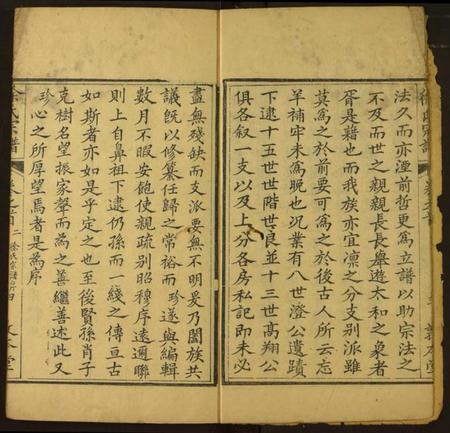 法久而亦湮前哲更為立譜以助宗法之
不及而世之親親長長舉遊太和之象者
胥是藉也而我族亦宜凛之分支别派雖
莫為之於前要可為之於後古人所云忘
羊補牢未為晚也況業有八世澄公遺蹟
下逮十五世世階世良並十三世高翔公
俱各叙一支以及上分各房私記即未必
盡無殘缺而支派要無不明爰乃闔族共
議既以修纂任歸之常裕而珍遂與編輯
數月不暇安飽使親疏别昭穆序遠邇聯
則上自鼻祖下逮仍孫而一綫之傳亘古
如斯者亦如是乎定之也至後賢孫肖子
克樹名望振家聲而為之善繼善述此又
珍心之所厚望焉者是為序
徐氏宗譜
卷之首
二